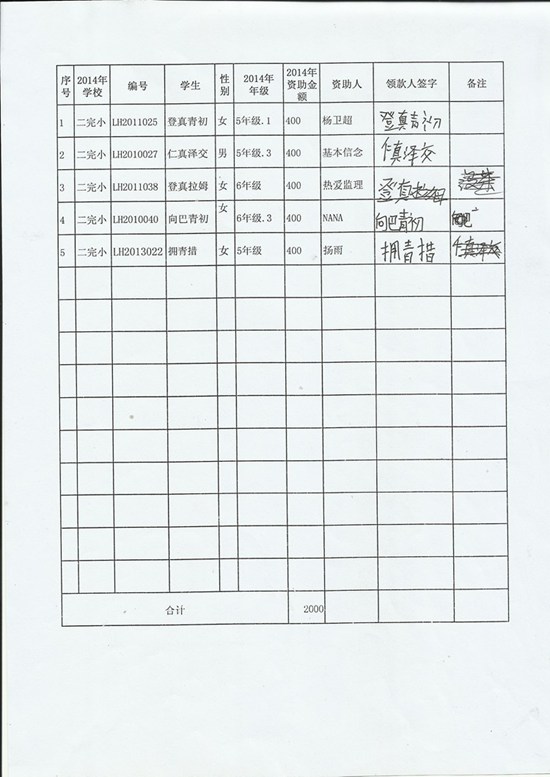 序号 2014年学校 编号 学生 性别 2014年年级 2014年资助金额 资助人 领款人签字 备注
1 二完小 LH2011025 登真青初 女 5年级.1 400 杨卫超 登真青初
2 二完小 LH2010027 仁真泽交 男 5年级.3 400 基本信念 仁真泽交
3 二完小 LH2011038 登真拉姆 女 6年级 400 热爱监理 登真拉姆
4 二完小 LH2010040 向巴青初 女 6年级.3 400 NANA 向巴青初
5 二完小 LH2013022 拥青措 女 5年级 400 扬雨 拥青措
合计 2000